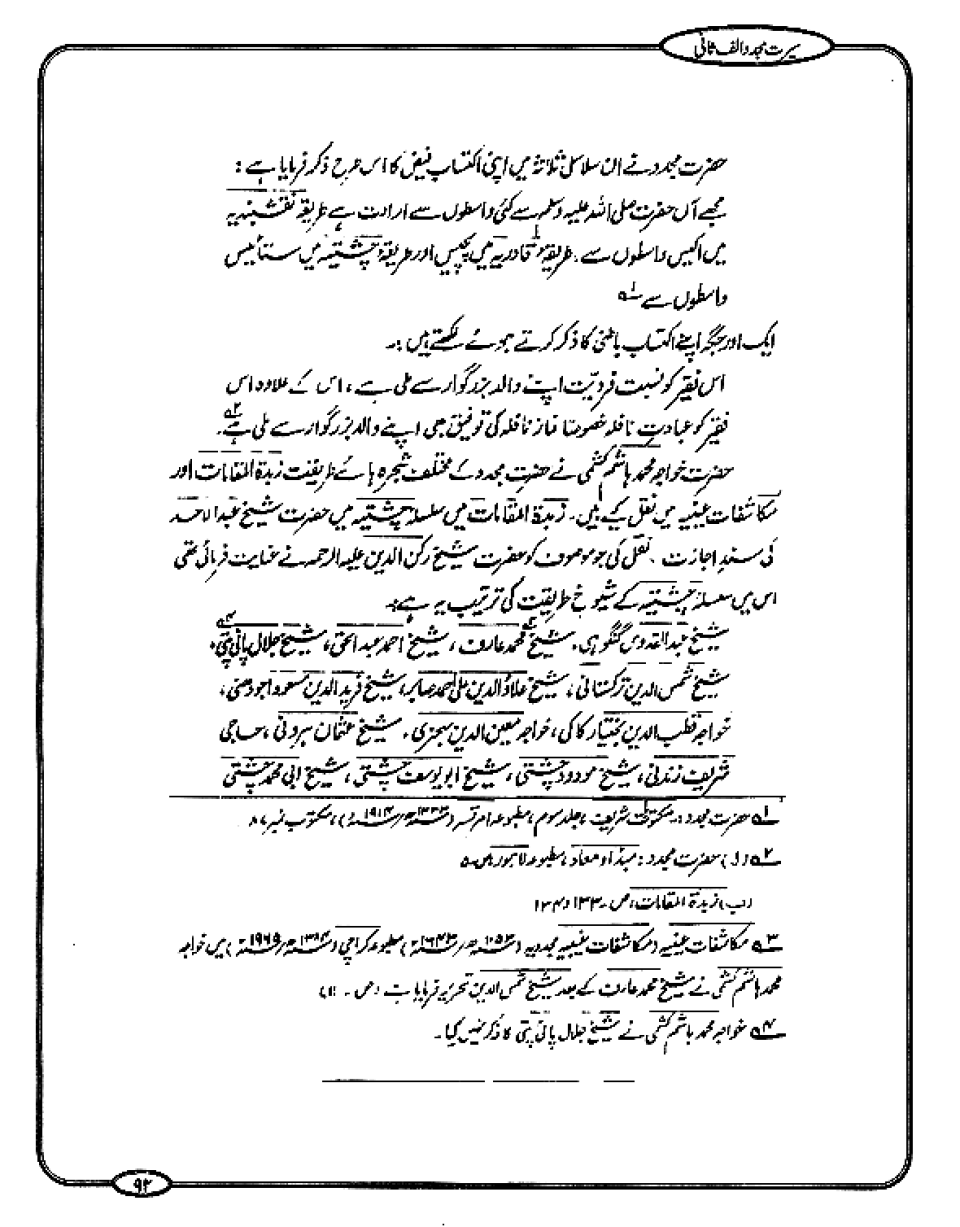 سیرت مجدد الف ثانی
حضرت مجدد نے ان سلاسل ثلاثہ میں اپنی اکتساب فیض کا اس طرح ذکر فرمایا ہے :
مجھے آں حضرت صلی اللہ علیہ وسلم سے کئی واسطوں سے ارادت ہے طریقۂ نقشبندیہ
میں اکیس واسطوں سے۔ طریقۂ قادریہ میں پچیس اور طریقۂ چشتیہ میں ستائیس
واسطوں سے ؎۱
ایک اور جگہ اپنے اکتساب باطنی کا ذکر کرتے ہوئے لکھتے ہیں :۔
اس فقیر کو نسبت فردیّت اپنے والد بزرگوار سے ملی ہے ، اس کے علاوہ اس
فقیر کو عبادتِ نافلہ خصوصًا نماز نافلہ کی توفیق بھی اپنے والد بزرگوار سے ملی ہے ؎۲۔
حضرت خواجہ محمد ہاشم کشمی نے حضرت مجدد کے مختلف شجرہ ہائے طریقت زبدۃ المقامات اور
مکاشفات عینیہ میں نقل کیے ہیں۔ زبدۃ المقامات میں سلسلہ چشتیہ میں حضرت شیخ عبدالاحد
کی سندِ اجازت نقل کی جو موصوف کو حضرت شیخ رکن الدین علیہ الرحمہ نے عنایت فرمائی تھی
اس میں سلسلۂ چشتیہ کے شیوخ طریقت کی ترتیب یہ ہے :۔
شیخ عبدالقدوس گنگوہی، شیخ محمد عارف ؎۳، شیخ احمد عبدالحق، شیخ جلال پانی پتی ؎۴،
شیخ شمس الدین ترکستانی ، شیخ علاؤالدین علی احمد صابر، شیخ فرید الدین مسعود اجودھنی ،
خواجہ قطب الدین بختیار کاکی ، خواجہ معین الدین سجزی ، شیخ عثمان ہرونی ، حاجی
شریف زندنی ، شیخ مودود چشتی ، شیخ ابو یوسف چشتی ، شیخ ابی محمد چشتی
؎۱ حضرت مجدد : مکتوبات شریف ، جلد سوم ، مطبوعہ امرتسر (۱۳۳۳ھ/۱۹۱۴ء) ، مکتوب نمبر ۸۷
؎۲ (ا) حضرت مجدد : مبداء و معاد ، مطبوعہ لاہور ، ص ۵
(ب) زبدۃ المقامات ، ص ۔ ۱۳۳ و ۱۳۴
؎۳ مکاشفات عینیہ (مکاشفات غیبیہ مجددیہ (۱۰۵۳ھ/۱۶۴۳ء) مطبوعہ کراچی (۱۳۸۴ھ/۱۹۶۵ء) میں خواجہ
محمد ہاشم کشمی نے شیخ محمد عارف کے بعد شیخ شمس الدین تحریر فرمایا ہے (ص ۔ ۱۱)
؎۴ خواجہ محمد ہاشم کشمی نے شیخ جلال پانی پتی کا ذکر نہیں کیا ۔
۹۲